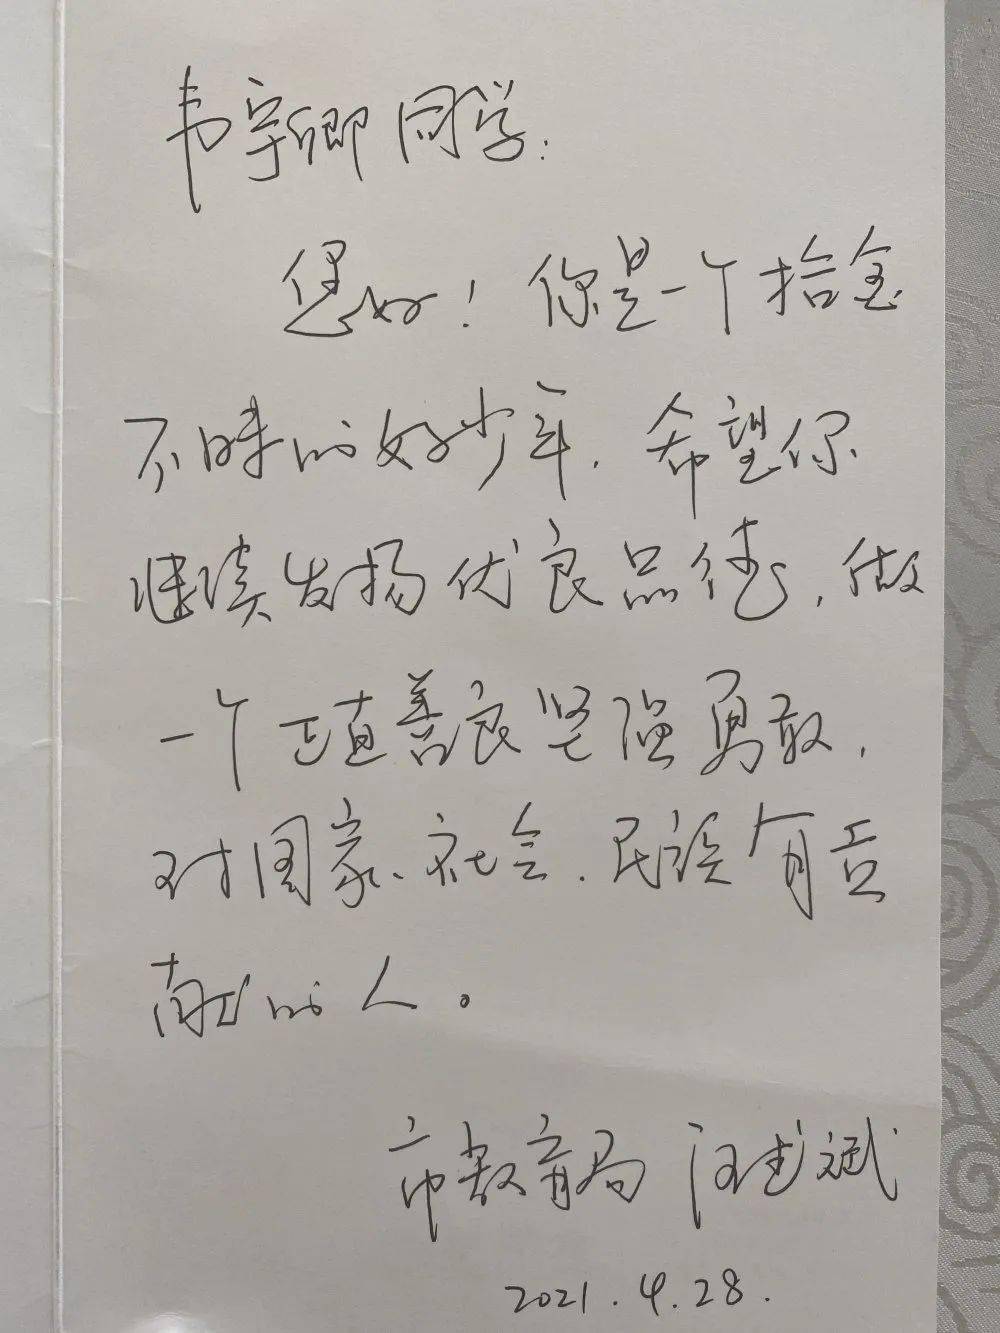 韦宇卿同学：
您好！你是一个拾金
不昧的好少年，希望你
继续发扬优良品德，做
一个正直善良坚强勇敢，
对国家、社会、民族有贡
献的人。
市教育局 汪武斌
2021.4.28.